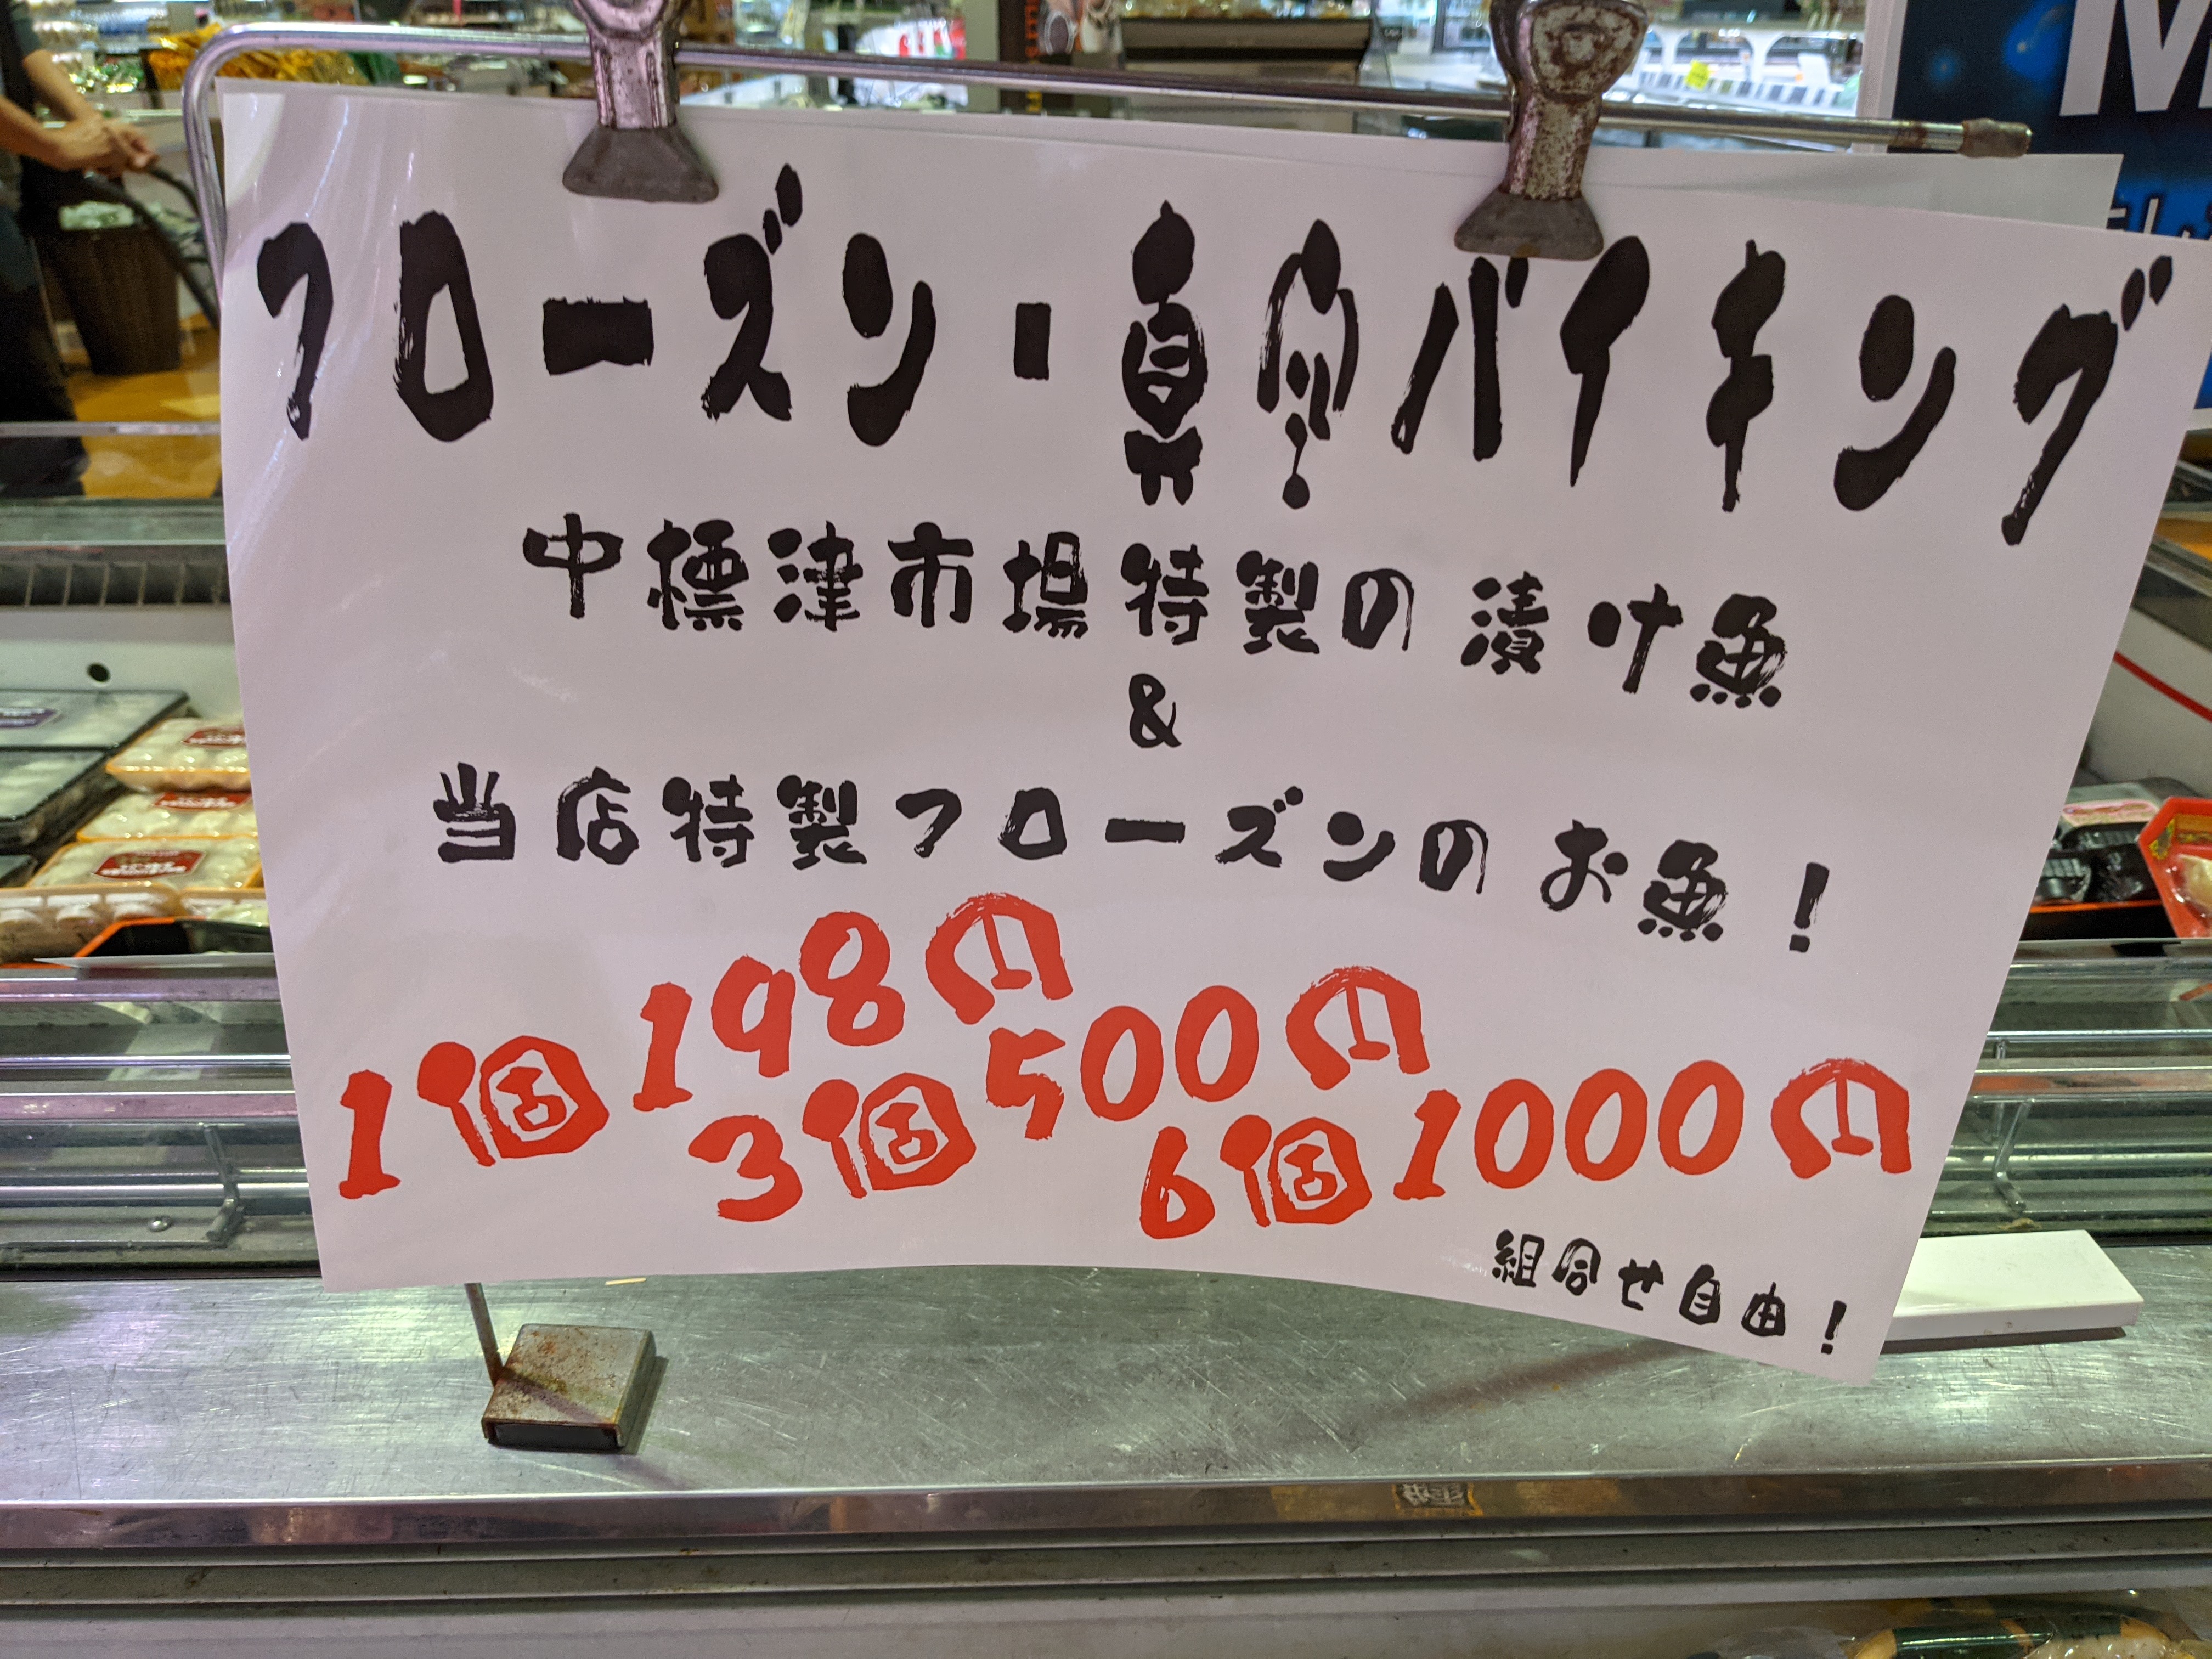 フローズン・真空バイキング
中標津市場特製の漬け魚
&
当店特製フローズンのお魚!
1個198円
3個500円
6個1000円
組合せ自由!
M